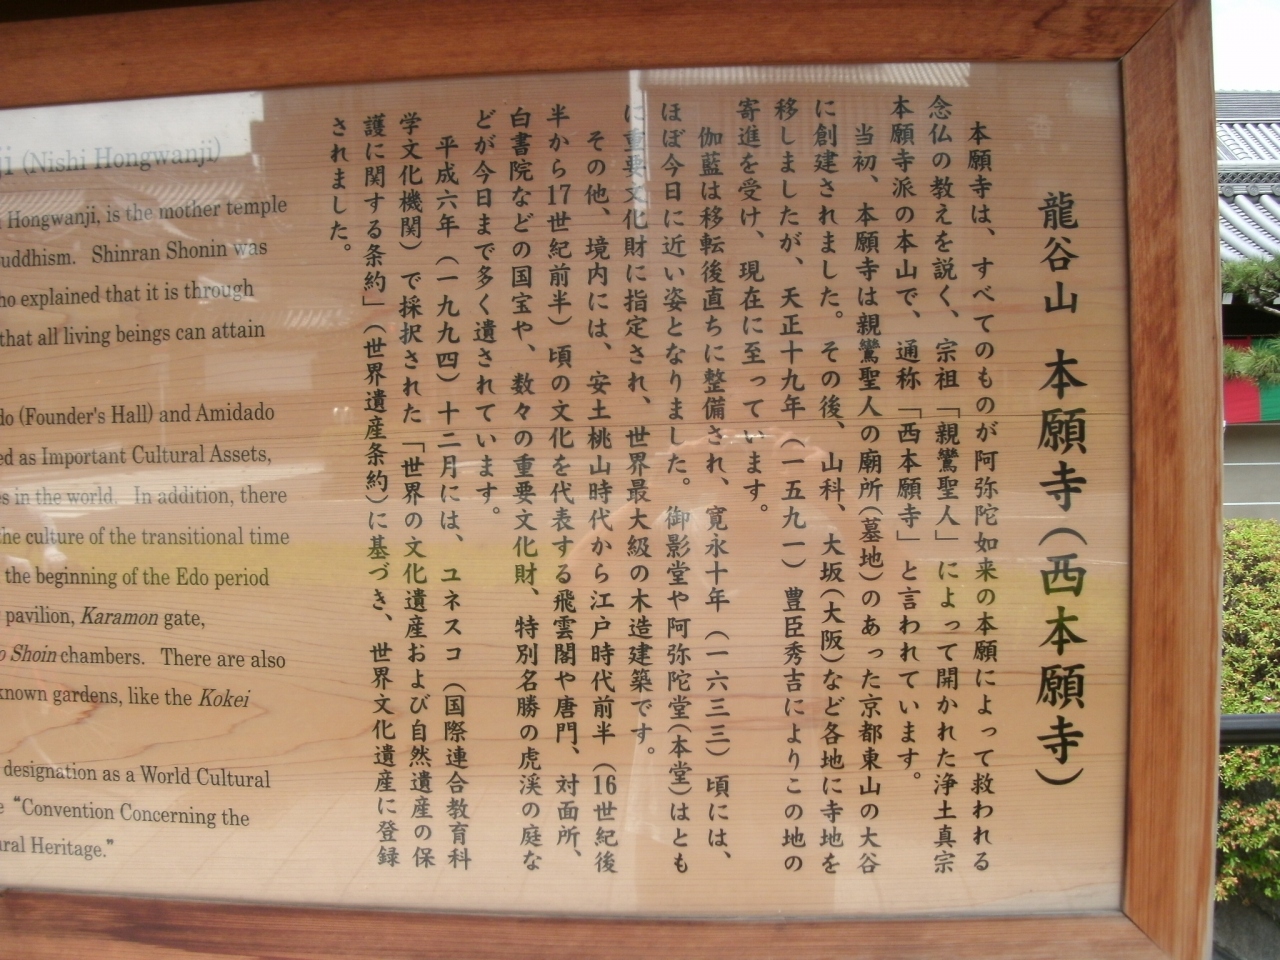 龍谷山 本願寺(西本願寺)
本願寺は、すべてのものが阿弥陀如来の本願によって救われる
念仏の教えを説く、宗祖「親鸞聖人」によって開かれた浄土真宗
本願寺派の本山で、通称「西本願寺」と言われています。
当初、本願寺は親鸞聖人の廟所(墓地)のあった京都東山の大谷
に創建されました。その後、山科、大坂(大阪)など各地に寺地を
移しましたが、天正十九年(一五九一)豊臣秀吉によりこの地の
寄進を受け、現在に至っています。
伽藍は移転後直ちに整備され、寛永十年(一六三三)頃には、
ほぼ今日に近い姿となりました。御影堂や阿弥陀堂(本堂)はとも
に重要文化財に指定され、世界最大級の木造建築です。
その他、境内には、安土桃山時代から江戸時代前半(16世紀後
半から17世紀前半)頃の文化を代表する飛雲閣や唐門、対面所、
白書院などの国宝や、数々の重要文化財、特別名勝の虎渓の庭な
どが今日まで多く遺されています。
平成六年(一九九四)十二月には、ユネスコ(国際連合教育科
学文化機関)で採択された「世界の文化遺産および自然遺産の保
護に関する条約」(世界遺産条約)に基づき、世界文化遺産に登録
されました。
ji (Nishi Hongwanji)
Hongwanji, is the mother temple
uddhism. Shinran Shonin was
ho explained that it is through
that all living beings can attain
do (Founder's Hall) and Amidado
ed as Important Cultural Assets,
es in the world. In addition, there
the culture of the transitional time
the beginning of the Edo period
pavilion, Karamon gate,
o Shoin chambers. There are also
known gardens, like the Kokei
designation as a World Cultural
e "Convention Concerning the
ural Heritage."